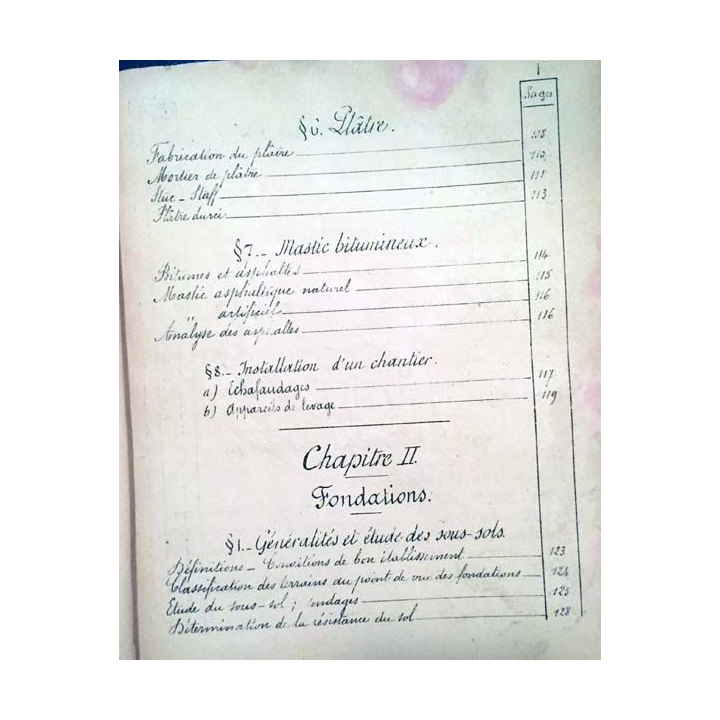 Pages
§6. Plâtre.
Fabrication du plâtre 108
Mortier de plâtre 110
Stuc - Staff 111
Plâtre durci 113
§7.- Mastic bitumineux.
Bitumes et asphaltes 114
Mastic asphaltique naturel 115
" artificiel 116
Analyse des asphaltes 116
§8.- Installation d'un chantier.
a) Echafaudages 117
b) Appareils de levage 119
Chapitre II.
Fondations.
§1.- Généralités et étude des sous-sols.
Définitions - Conditions de bon établissement 123
Classification des terrains du point de vue des fondations 124
Etude du sous-sol ; sondages 125
Détermination de la résistance du sol 128